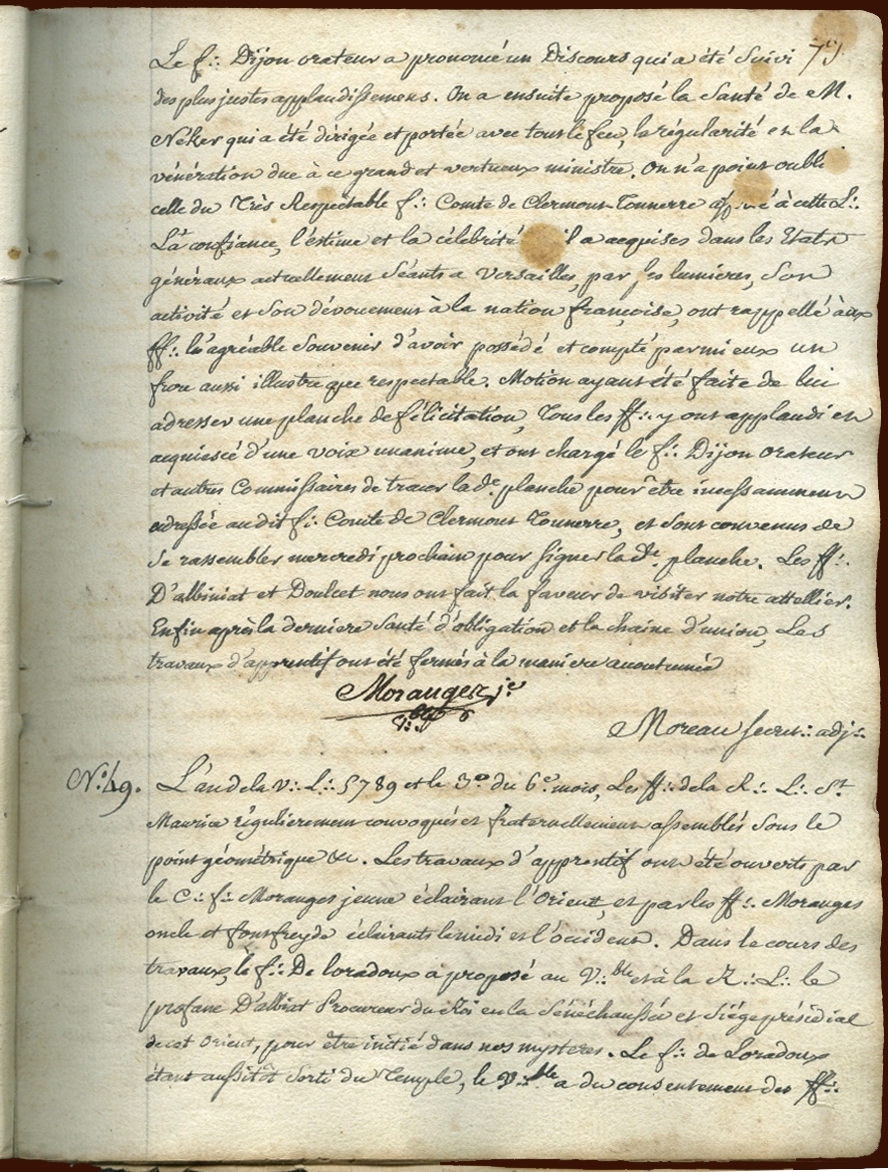 Le f∴ Dijon orateur a prononcé un Discours qui a été Suivi
des plus justes applaudissemens. On a ensuite proposé la Santé de M.
Néker qui a été dirigée et portée avec tout le feu, la régularité et la
vénération due à ce grand et vertueux ministre. On n'a point oublié
celle du Très Respectable f∴ Comte de Clermont-Tonnerre à cette L∴
La confiance, l'éstime et la célébrité il a acquises dans les Etats
généraux actuellement Séants a Versailles, par ses lumieres, Son
activité et Son dévouement à la nation françoise, ont rappellé à aux
ff∴ l'agréable Souvenir d'avoir possédé et compté parmi eux un
frere aussi illustre que respectable. Motion ayant été faite de lui
adresser une planche de félicitation, Tous les ff∴ y ont applaudi et
acquiescé d'une voix unanime, et ont chargé le f∴ Dijon Orateur
et autres Commissaires de tracer lad.e planche pour être incessamment
adressée audit f∴ Comte de Clermont Tonnerre, et Sont convenus de
Se rassembler mercredi prochain pour signer lad.e planche. Les ff∴
D'albiniat et Doulcet nous ont fait la faveur de visiter notre attellier.
Enfin après la derniere Santé d'obligation et la chaine d'union, Les
travaux d'apprentif ont été fermés à la maniere accoutumée
Moranges j.e
Moreau secret∴ adj∴
N.o 49. L'an de la V∴ L∴ 5789 et le 3.e du 6.e mois, Les ff∴ de la R∴ L∴ S.t
Maurice régulierement convoqués et fraternellement assemblés Sous le
point géométrique &c. Les travaux d'apprentif ont été ouverts par
le C∴ f∴ Moranges jeune éclairant l'Orient, et par les ff∴ Moranges
oncle et fonfreyde éclairants le midi et l'occident. Dans le cours des
travaux, le f∴ De loradoux a proposé au V∴ble et à la R∴ L∴ le
profane D'albiat Procureur du Roi en la Sénéchaussée et Siége présidial
de cet Orient, pour être initié dans nos mysteres. Le f∴ de Loradoux
étant aussitôt Sorti du Temple, le V∴ble a du consentement des ff∴